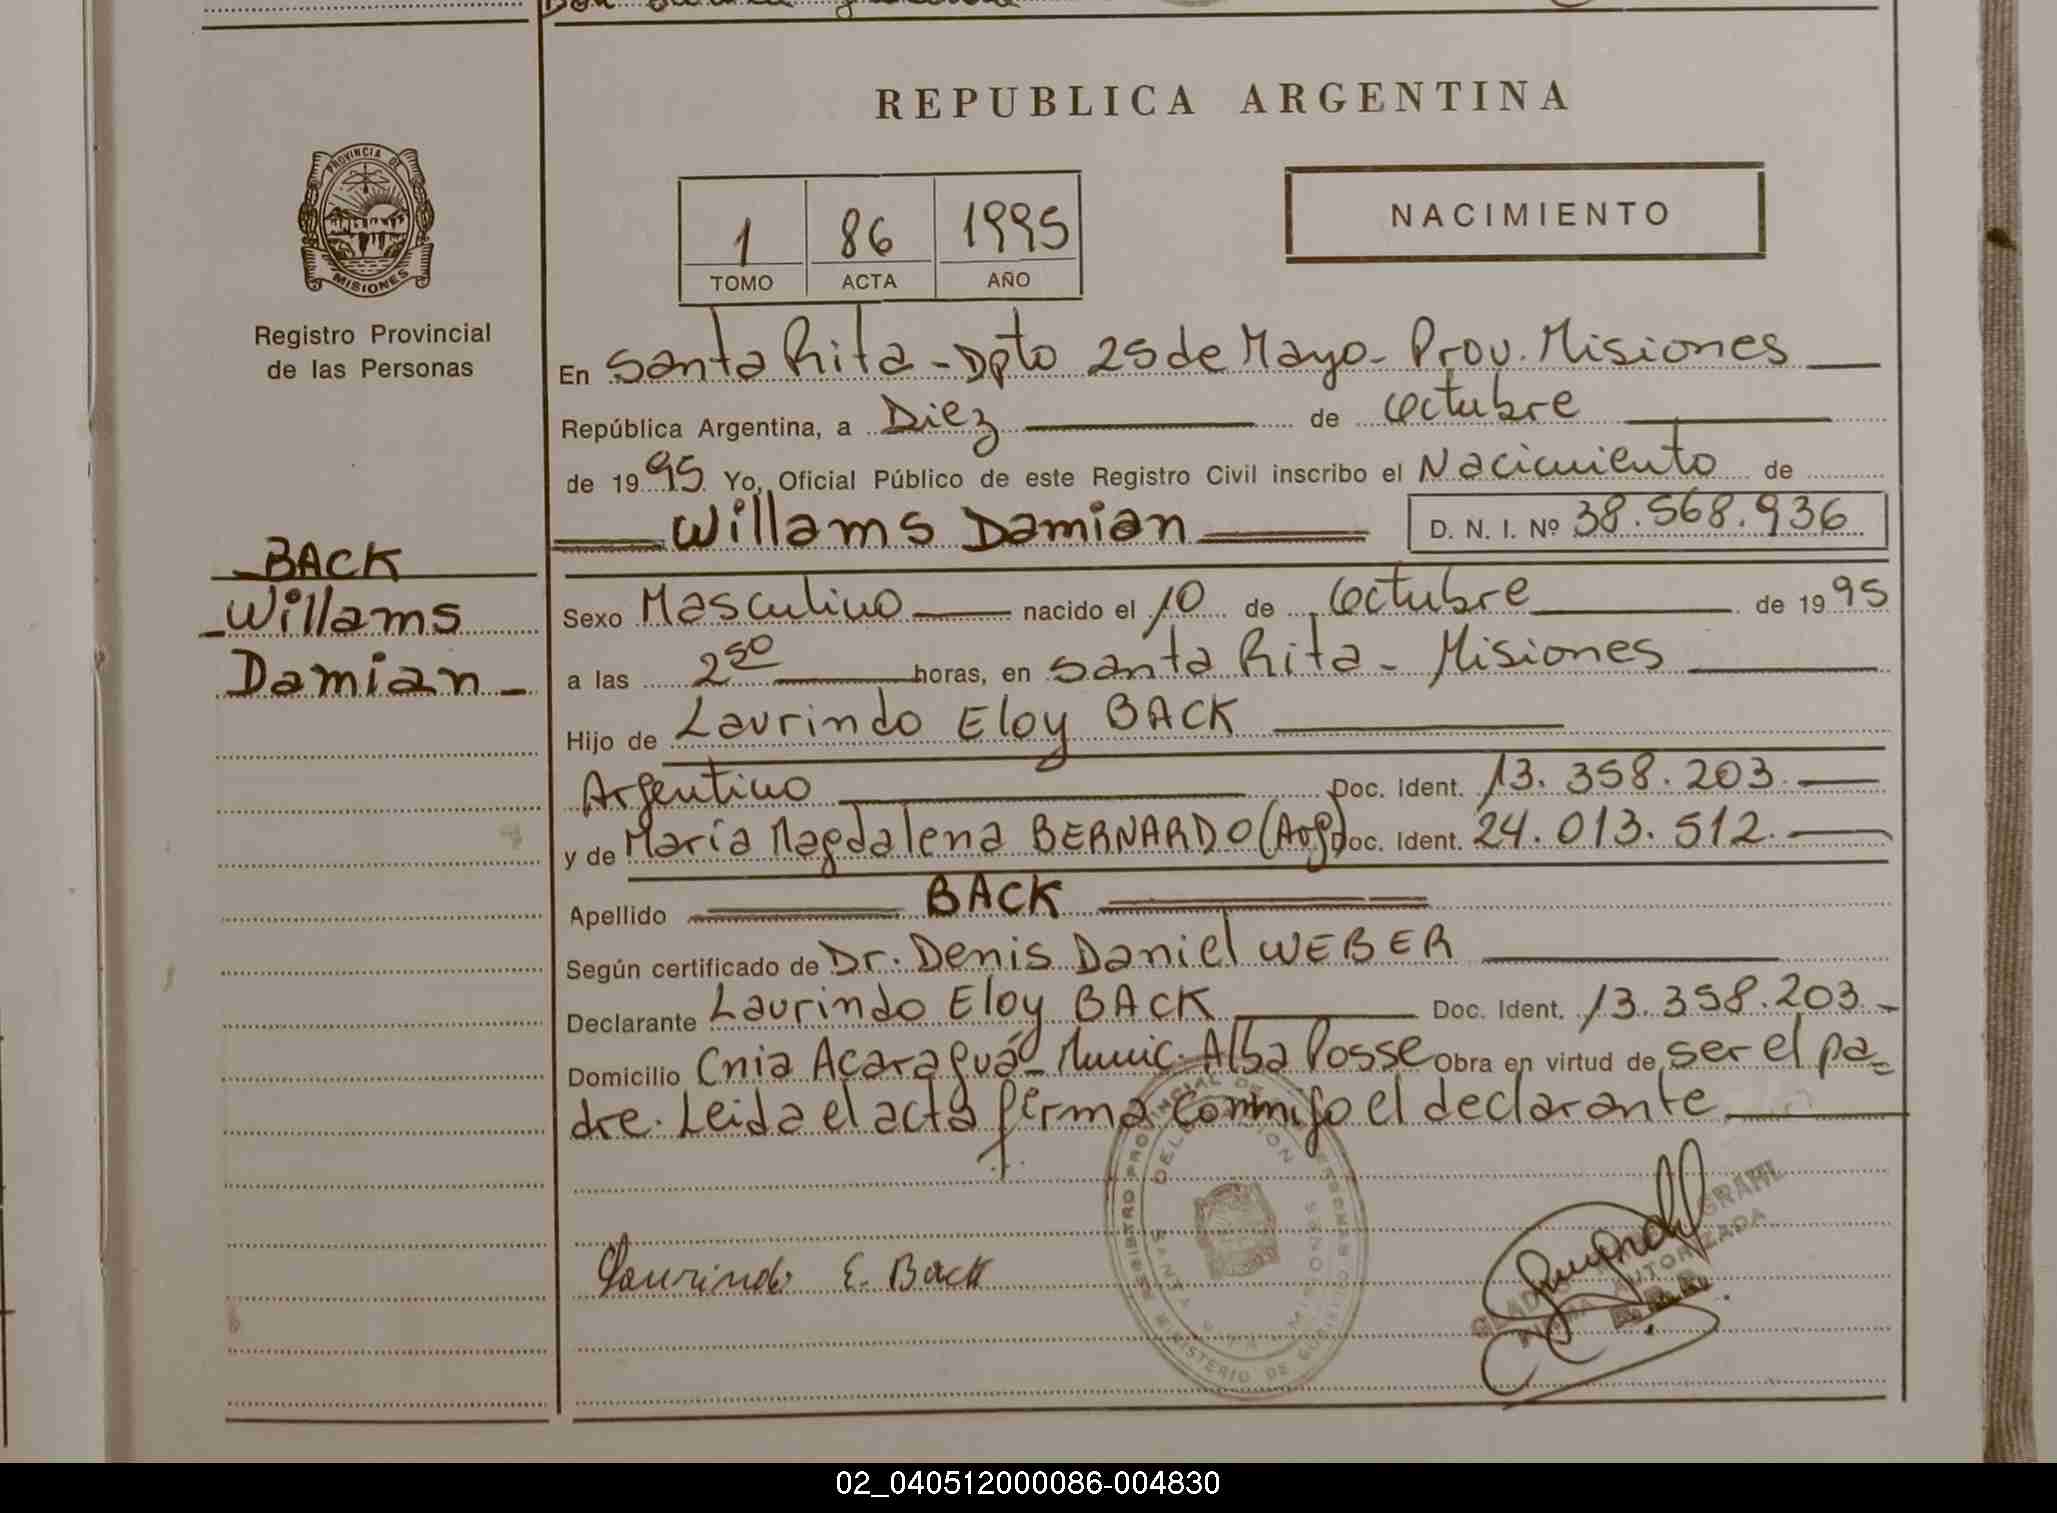 REPUBLICA ARGENTINA
PROVINCIA DE
MISIONES
Registro Provincial
de las Personas
1 86 1995
TOMO ACTA AÑO
NACIMIENTO
En Santa Rita - Dpto 25 de Mayo - Prov. Misiones
República Argentina, a Diez de octubre
de 1995 Yo, Oficial Público de este Registro Civil inscribo el Nacimiento de
Willams Damian D. N. I. Nº 38.568.936
BACK
Willams
Damian
Sexo Masculino nacido el 10 de octubre de 1995
a las 2 50 horas, en Santa Rita - Misiones
Hijo de Laurindo Eloy BACK
Argentino Doc. Ident. 13.358.203
y de María Magdalena BERNARDO (Arg) Doc. Ident. 24.013.512
Apellido BACK
Según certificado de Dr. Denis Daniel WEBER
Declarante Laurindo Eloy BACK Doc. Ident. 13.358.203
Domicilio Cnia Acaraguá - Munic. Alba Posse Obra en virtud de ser el pa=
dre. Leida el acta firma conmigo el declarante
Laurindo E. Back
GRAHL
FIRMA AUTORIZADA
02_040512000086-004830